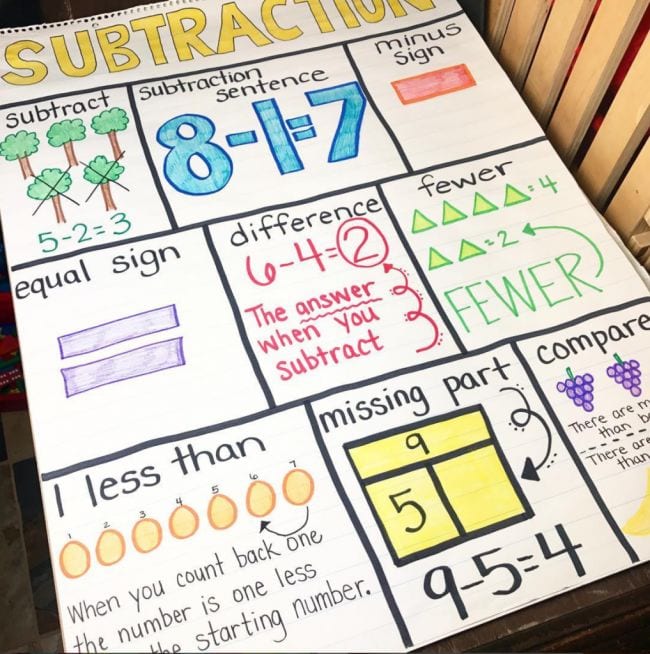 SUBTRACTION
subtract
5-2=3
subtraction
sentence
8-1=7
minus
sign
equal sign
difference
6-4=2
The answer
when you
subtract
fewer
=4
=2
FEWER
1 less than
1 2 3 4 5 6 7
When you count back one
the number is one less
starting number.
missing part
9
5
9-5=4
compare
There are
than
There are
than